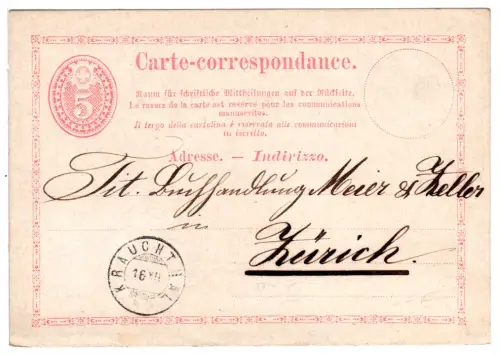 Carte-correspondance.
5
Raum für schriftliche Mittheilungen auf der Rückseite.
Le revers de la carte est réservé pour les communications
manuscrites.
Il tergo della cartolina è riservato alle communicazioni
in iscritto.
Adresse. — Indirizzo.
Tit. Buchhandlung Meier & Zeller
in
Zürich.
KRAUCHTHAL
16 XII